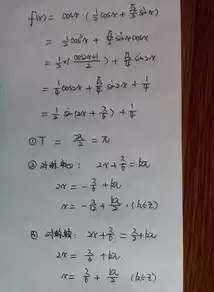 f(x) = cosx·(1/2 cosx + √3/2 sinx)
= 1/2 cos²x + √3/2 sinxcosx
= 1/2 × (cos2x+1/2) + √3/4 sin2x
= 1/4 cos2x + √3/4 sin2x + 1/4
= 1/2 sin(2x + π/6) + 1/4
① T = 2π/2 = π
② 对称中心: 2x + π/6 = kπ
2x = -π/6 + kπ
x = -π/12 + kπ/2 (k∈Z)
③ 对称轴: 2x + π/6 = π/2 + kπ
2x = π/3 + kπ
x = π/6 + kπ/2 (k∈Z)